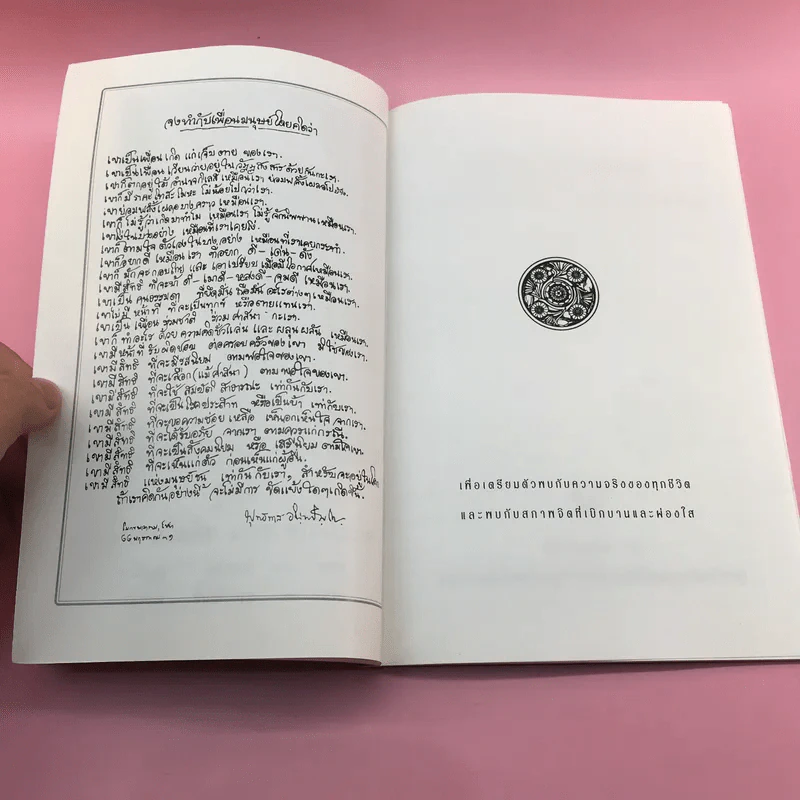 จงทำกับเพื่อนมนุษย์โดยคิดว่า
เขาเป็นเพื่อน เกิด แก่ เจ็บ ตาย ของเรา.
เขาเป็นเพื่อน เวียนว่ายอยู่ใน วัฏฏสงสาร ด้วยกันกะเรา.
เขาก็ตกอยู่ใต้ อำนาจกิเลส เหมือนเรา ย่อมพลั้งเผลอไปบ้าง.
เขาก็มี ราคะ โทสะ โมหะ ไม่น้อยไปกว่าเรา.
เขาย่อมพลั้งเผลอบางคราว เหมือนเรา.
เขาก็ไม่รู้ว่าเกิดมาทำไม เหมือนเรา ไม่รู้จักนิพพานเหมือนเรา.
เขาโง่ในบางอย่าง เหมือนที่เราเคยโง่.
เขาก็ตามใจตัวเองในบางอย่าง เหมือนที่เราเคยกระทำ.
เขาก็อยากดี เหมือนเรา ที่อยาก ดี - เด่น - ดัง
เขาก็มักจะกอบโกย และ เอาเปรียบ เมื่อมีโอกาสเหมือนเรา.
เขามีสิทธิ ที่จะบ้าดี - เมาดี - หลงดี - จมดี เหมือนเรา.
เขาเป็น คนธรรมดา ที่ยึดมั่น ถือมั่น อะไรต่างๆ เหมือนเรา.
เขาไม่มี หน้าที่ ที่จะเป็นทุกข์ หรือตายแทนเรา.
เขาเป็น เพื่อน ร่วมชาติ ร่วมศาสนา กะเรา.
เขาก็ทำอะไร ด้วยความคิดชั่วแล่น และ ผลุนผลัน เหมือนเรา.
เขามีหน้าที่รับผิดชอบ ต่อครอบครัวของเขา มิใช่ของเรา.
เขามีสิทธิ ที่จะมีรสนิยม ตามพอใจของเขา.
เขามีสิทธิ ที่จะเลือก (แม้ศาสนา) ตามพอใจของเขา.
เขามีสิทธิ ที่จะใช้ สมบัติสาธารณะ เท่ากันกับเรา.
เขามีสิทธิ ที่จะเป็นโรคประสาท หรือเป็นบ้า เท่ากับเรา.
เขามีสิทธิ ที่จะขอความช่วยเหลือ เห็นอกเห็นใจ จากเรา.
เขามีสิทธิ ที่จะได้รับอภัย จากเรา ตามควรแก่กรณี.
เขามีสิทธิ ที่จะเป็นสังคมนิยม หรือ เสรีนิยม ตามใจเขา.
เขามีสิทธิ ที่จะเห็นแก่ตัว ก่อนเห็นแก่ผู้อื่น.
เขามีสิทธิ แห่งมนุษยชน เท่ากันกับเรา, สำหรับจะอยู่ในโลก
ถ้าเราคิดกันอย่างนี้ จะไม่มีการ ขัดแย้งใดๆเกิดขึ้น.
พุทธทาส อินฺทปญฺโญ
โมกขพลาราม, ไชยา
๓๑
เพื่อเตรียมตัวพบกับความจริงของทุกชีวิต
และพบกับสภาพจิตที่เบิกบานและผ่องใส